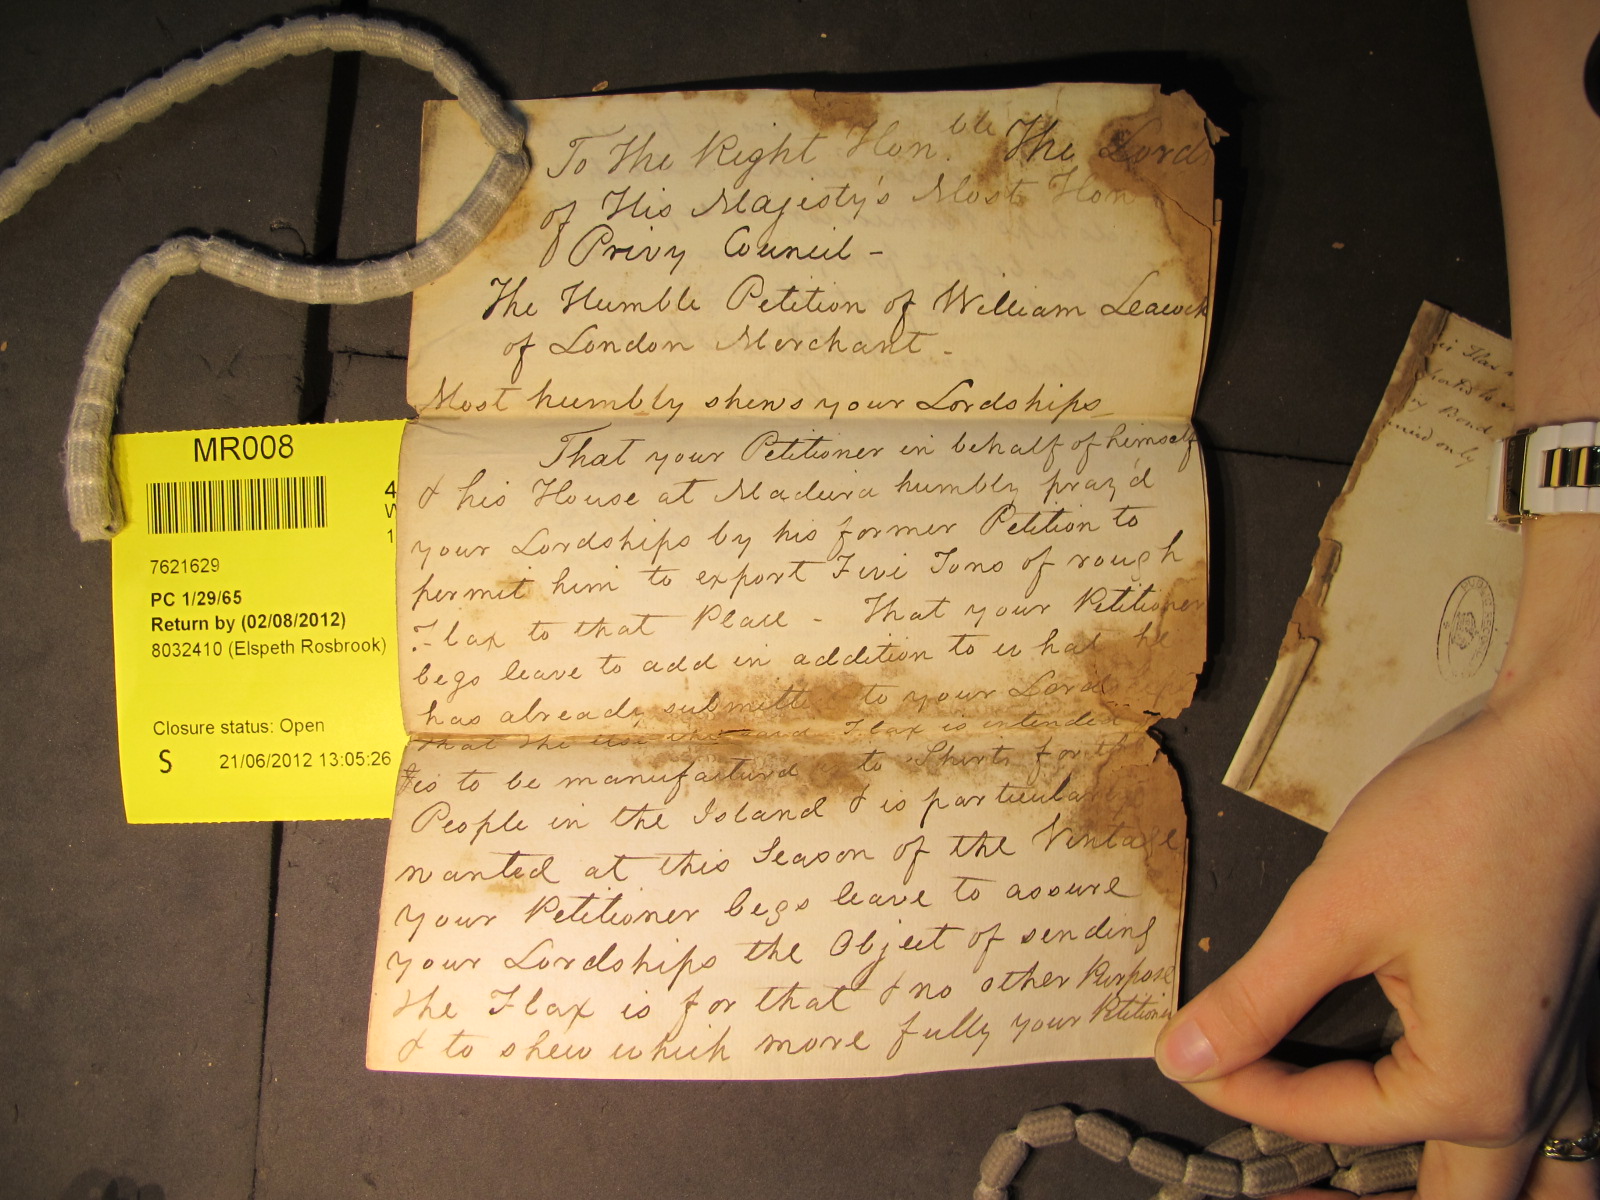 To The Right Hon.ble The Lords
of His Majesty's Most Hon
Privy Council -
The Humble Petition of William Leacock
of London Merchant -
Most humbly shews your Lordships
That your Petitioner in behalf of himself
& his House at Madeira humbly pray'd
your Lordships by his former Petition to
permit him to export Five Tons of rough
Flax to that Place - That your Petitioner
begs leave to add in addition to what he
has already submitte to your Lordships
that the Use the said Flax is intended
is to be manufactured to Shirts for the
People in the Island & is particularly
wanted at this Season of the Vintage
your Petitioner begs leave to assure
your Lordships the Object of sending
the Flax is for that & no other Purpose
& to shew which more fully your Petitioner
MR008
4
1
7621629
PC 1/29/65
Return by (02/08/2012)
8032410 (Elspeth Rosbrook)
Closure status: Open
S 21/06/2012 13:05:26
Bond
only